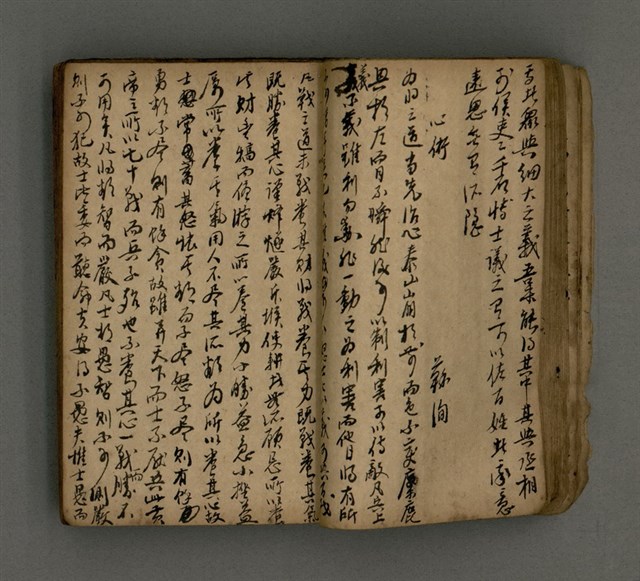 焉者眾與細大之義吾未能得其中其與丞相
列侯吏二千石博士議之有可以佐百姓者率意
遠思無有所隱
心術 蘇洵
為將之道當先治心泰山崩於前而色不變麋鹿
興於左而目不瞬然後可以制利害可以待敵凡兵上
義不義雖利勿動非一動之為利害而他日將有所
凡戰之道未戰養其財將戰養其力既戰養其氣
既勝養其心謹烽燧嚴斥堠使耕者無所顧忌所以養
其財豐犒而優游之所以養其力小勝益急小挫益
厲所以養其氣用人不盡其所欲為所以養其心故
士常蓄其怒懷其欲而不盡怒不盡則有餘
勇欲不盡則有餘貪故雖并天下而士不厭兵此黃
帝之所以七十戰而兵不殆也不養其心一戰而勝不
可用矣凡將欲智而嚴凡士欲愚智則不可測嚴
則不可犯故士皆委己而聽命夫安得不愚夫惟士愚而